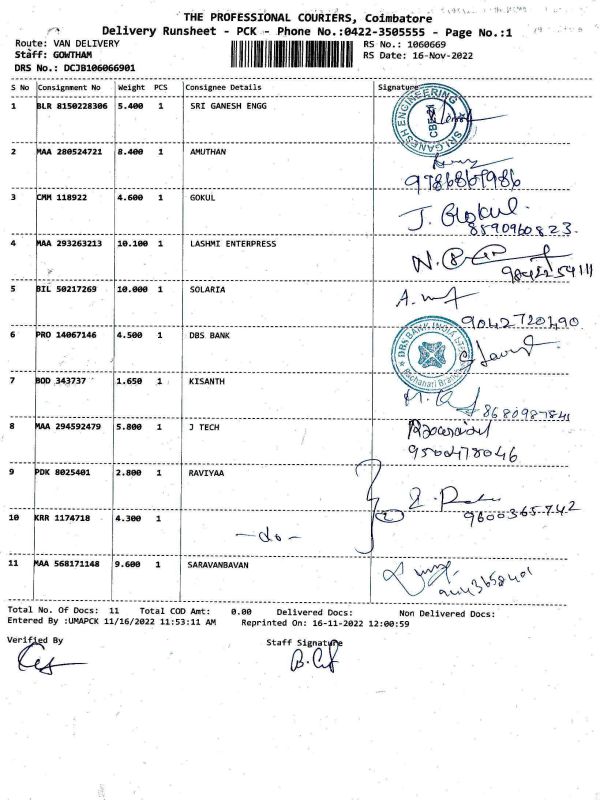 THE PROFESSIONAL COURIERS, Coimbatore
Delivery Runsheet - PCK - Phone No.:0422-3505555 - Page No.:1
Route: VAN DELIVERY RS No.: 1060669
Staff: GOWTHAM RS Date: 16-Nov-2022
DRS No.: DCJB106066901
S No Consignment No Weight PCS Consignee Details Signature
1 BLR 8150228306 5.400 1 SRI GANESH ENGG
SRI GANESH ENGINEERING
2 MAA 280524721 8.400 1 AMUTHAN
9786867986
3 CMM 118922 4.600 1 GOKUL J. Gokul
8590960823
4 MAA 293263213 10.100 1 LASHMI ENTERPRESS
5 BIL 50217269 10.000 1 SOLARIA
9042720490
6 PRO 14067146 4.500 1 DBS BANK
DBS BANK INDIA
7 BOD 343737 1.650 1 KISANTH
8680987841
8 MAA 294592479 5.800 1 J TECH
9500478046
9 PDK 8025401 2.800 1 RAVIYAA
9600365742
10 KRR 1174718 4.300 1 -do-
11 MAA 568171148 9.600 1 SARAVANBAVAN
Total No. Of Docs: 11 Total COD Amt: 0.00 Delivered Docs: Non Delivered Docs:
Entered By :UMAPCK 11/16/2022 11:53:11 AM Reprinted On: 16-11-2022 12:00:59
Verified By Staff Signature